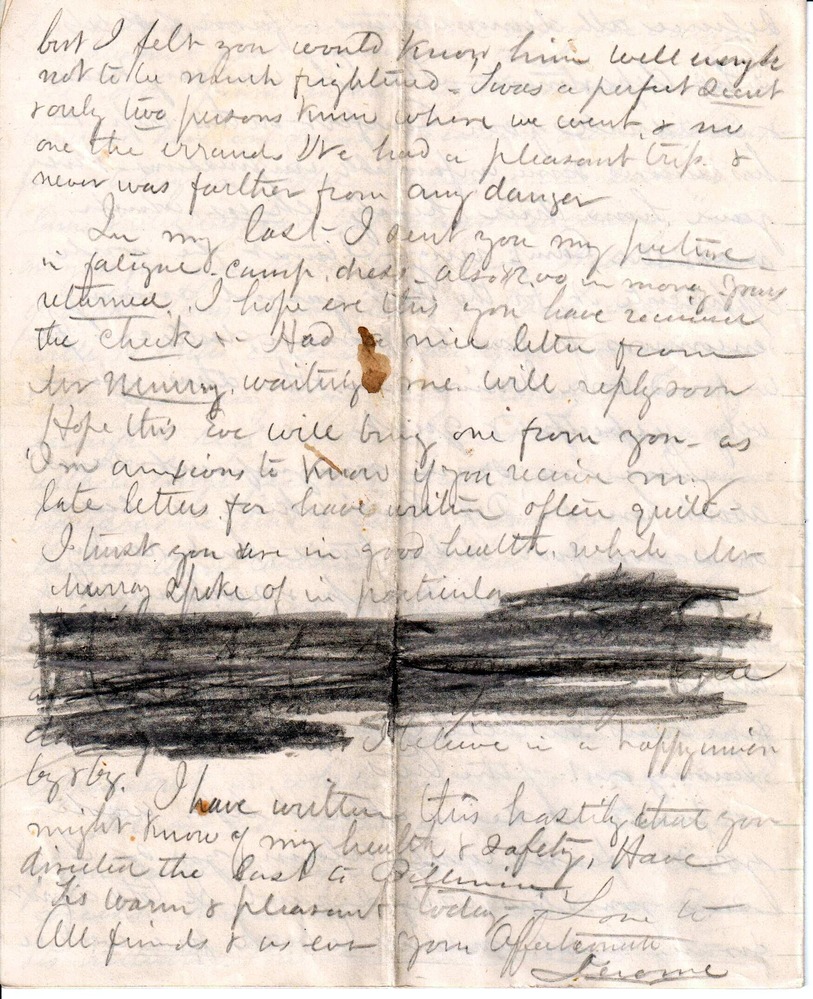 but I felt you would know him well enough
not to be much frightened - Twas a perfect secret
& only two persons knew where we went, & no
one the errand. We had a pleasant trip &
never was farther from any danger
In my last - I sent you my picture
in fatigue - camp dress - also in money yours
returned. I hope ere this you have received
the check - Had a nice letter from
Mr Murray, waiting me. will reply soon
Hope this Eve will bring one from you - as
I'm anxious to know if you receive my
late letters for have written often quite -
I trust you are in good health, which Mr
Murray spoke of in particular
I believe in a happy union
by & by. I have written this hastily that you
might know of my health & safety, Have
directed the last to
Tis warm & pleasant today - Love to
All friends & as ever your Affectionate
Jerome